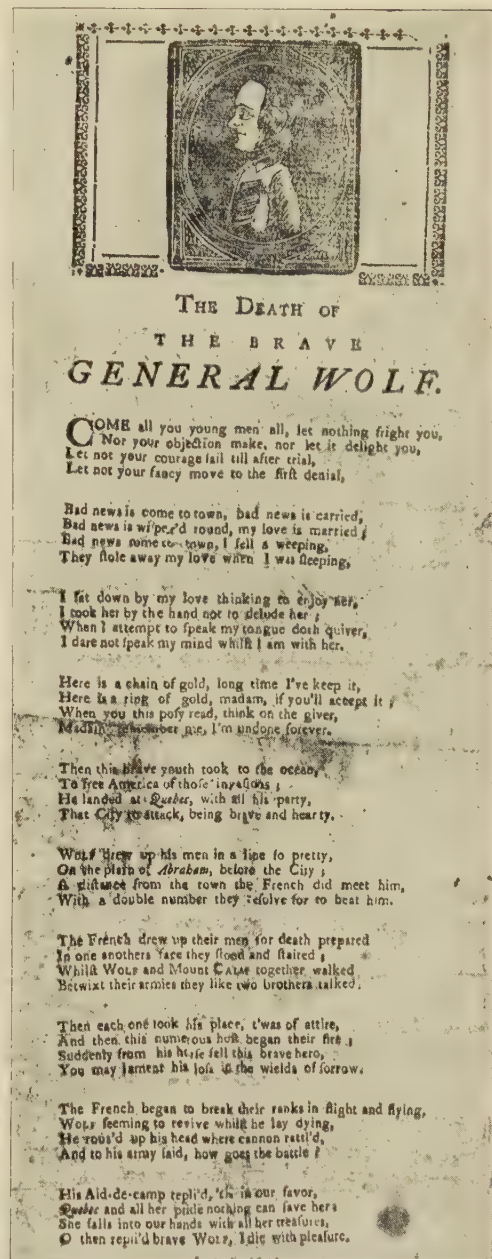 THE DEATH OF
THE BRAVE
GENERAL WOLF.
COME all you young men all, let nothing fright you,
Nor your objection make, nor let it delight you,
Let not your courage fail till after trial,
Let not your fancy move to the first denial,
Bad news is come to town, bad news is carried,
Bad news is round, my love is married ;
Bad news come to town, I fell a weeping,
They stole away my love when I was sleeping,
I sat down by my love thinking to enjoy her,
I took her by the hand not to delude her ;
When I attempt to speak my tongue doth quiver,
I dare not speak my mind whilst I am with her.
Here is a chain of gold, long time I've keep it,
Here is a ring of gold, madam, if you'll accept it ;
When you this posy read, think on the giver,
Madam, remember me, I'm undone forever.
Then this brave youth took to the ocean,
To free America of those invasions ;
He landed at Quebec, with all his party,
That City to attack, being brave and hearty.
WOLF drew up his men in a line so pretty,
On the plain of Abraham, before the City ;
A distance from the town the French did meet him,
With a double number they resolve for to beat him.
The French drew up their men for death prepared
In one anothers face they stood and staired ;
Whilst WOLF and Mount CALM together walked
Betwixt their armies they like two brothers talked.
Then each one took his place, t'was of attire,
And then this numerous host began their fire ;
Suddenly from his horse fell this brave hero,
You may lament his loss in the wields of sorrow.
The French began to break their ranks in flight and flying,
WOLF seeming to revive while he lay dying,
He rous'd up his head where cannon rattl'd,
And to his army said, how goes the battle ?
His Aid-de-camp repli'd, 'tis in our favor,
Quebec and all her pride nothing can save her ;
She falls into our hands with all her treasures,
O then repli'd brave WOLF, I die with pleasure.